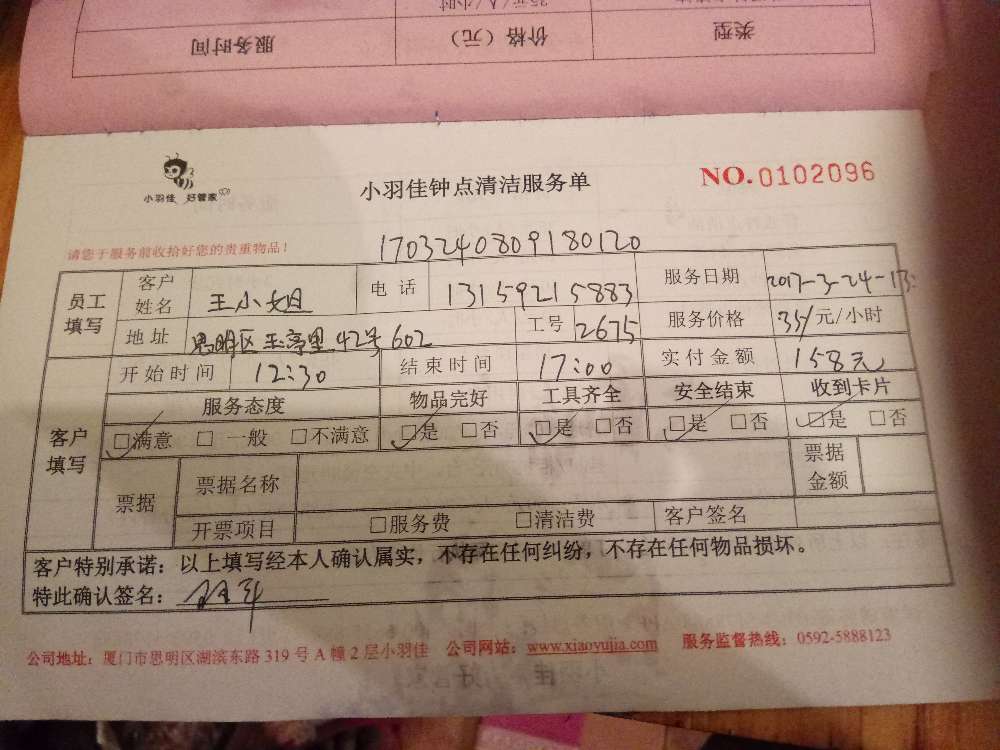 35元/人/小时
类型 价格（元） 服务时间
小羽佳 好管家
小羽佳钟点清洁服务单
NO.0102096
请您于服务前收拾好您的贵重物品！
1703240809180120
员工填写 客户姓名 王小姐 电话 13159215883 服务日期 2017-3-24-13:
地址 思明区玉亭里42号602 工号 2675 服务价格 35/元/小时
客户填写 开始时间 12:30 结束时间 17:00 实付金额 158元
服务态度 物品完好 工具齐全 安全结束 收到卡片
☑满意 □一般 □不满意 ☑是 □否 ☑是 □否 ☑是 □否 ☑是 □否
票据 票据名称 票据金额
开票项目 □服务费 □清洁费 客户签名
客户特别承诺：以上填写经本人确认属实，不存在任何纠纷，不存在任何物品损坏。
特此确认签名：
公司地址：厦门市思明区湖滨东路319号A幢2层小羽佳 公司网站：www.xiaoyujia.com 服务监督热线：0592-5888123